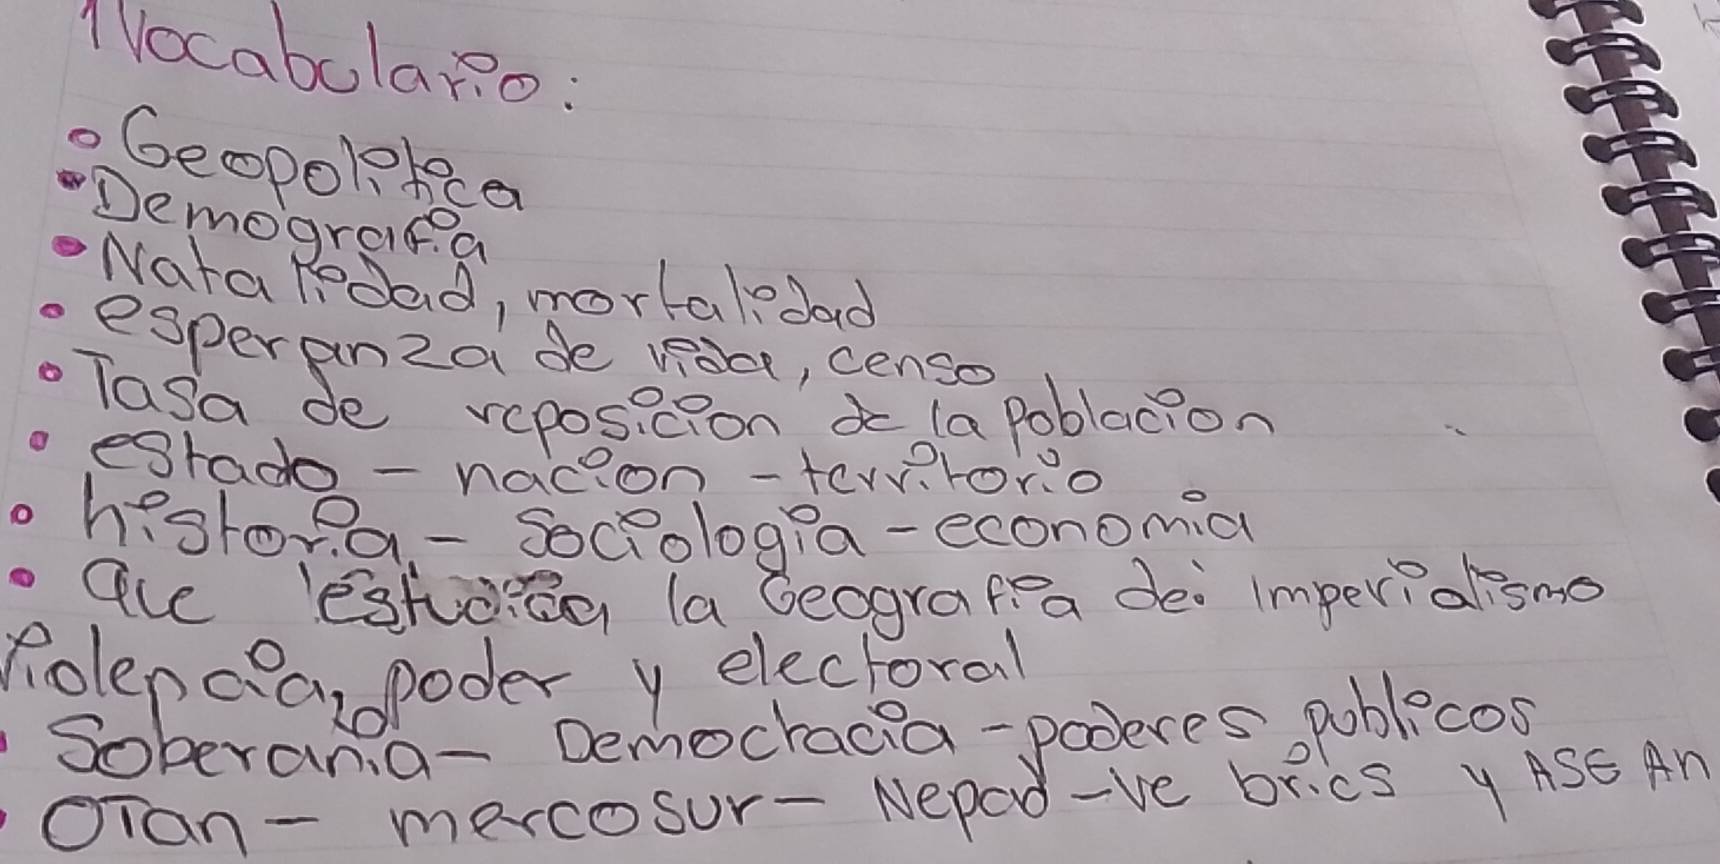 Vocabulario:
• Geopolitica
• Demografia
• Natalidad, mortalidad
• esperanza de vida, censo
• Tasa de reposicion de la Poblacion
• estado - nacion - territorio
• historia - sociologia - economia
• que estudia la Geografia de: imperialismo
Violencia, poder y electoral
• Soberania - Democracia - poderes publicos
• OTan - mercosur - Nepad - ve brics y ASEAn